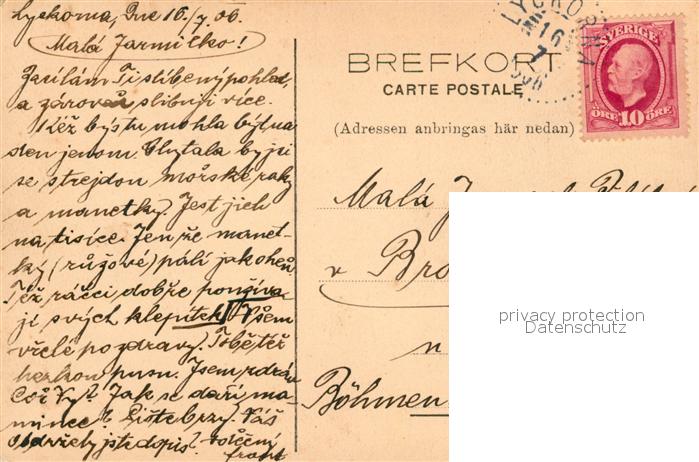 Lyckorna, Dne 16/7 06.
Malá Jarmilko!
Zasílám Ti slíbený pohled,
a zároveň slibuji více.
Kéž bys tu mohla být na
den jenom. Chytala by ji
se strejdou mořské raky
a manetky. Jest jich
na tisíce. Jen že manet-
ky (růžové) pálí jak oheň.
Též ráčci dobře používa
jí svých klepítek! Všem
vřelé pozdravy. Tobě též
hezkou pusu. Jsem zdráv
Což Vy? Jak se daří ma-
mince? Pište brzy. Váš
Obdrželi jste dopis?
BREFKORT
CARTE POSTALE
(Adressen anbringas här nedan)
SVERIGE
ÖRE 10 ÖRE
16
7
Malá
v
n
Böhmen
privacy protection
Datenschutz